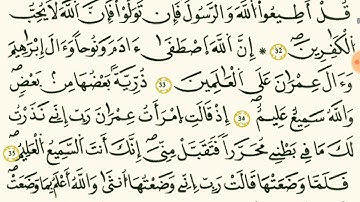 قُلْ أَطِيعُوا۟ اللَّهَ وَالرَّسُولَ فَإِن تَوَلَّوْا۟ فَإِنَّ اللَّهَ لَا يُحِبُّ
الْكَافِرِينَ 32 * إِنَّ اللَّهَ اصْطَفَىٰ ءَادَمَ وَنُوحاً وَءَالَ إِبْرَاهِيمَ
وَءَالَ عِمْرَانَ عَلَى الْعَالَمِينَ 33 ذُرِّيَّةً بَعْضُهَا مِنۢ بَعْضٍ
وَاللَّهُ سَمِيعٌ عَلِيمٌ 34 إِذْ قَالَتِ امْرَأَتُ عِمْرَانَ رَبِّ إِنِّي نَذَرْتُ
لَكَ مَا فِي بَطْنِي مُحَرَّراً فَتَقَبَّلْ مِنِّي إِنَّكَ أَنتَ السَّمِيعُ الْعَلِيمُ 35
فَلَمَّا وَضَعَتْهَا قَالَتْ رَبِّ إِنِّي وَضَعْتُهَا أُنثَىٰ وَاللَّهُ أَعْلَمُ بِمَا وَضَعَتْ